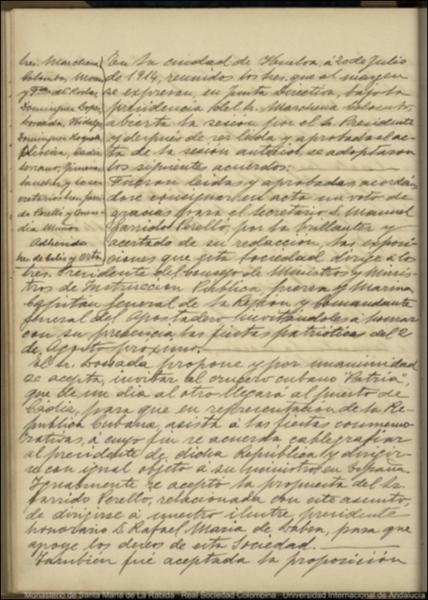 Sres. Marchena
Colombo, Mora
y
Dominguez
Losada, Hidalgo
Dominguez Roqueta
Oliveira, Cádiz
Serrano, Jimenez
Sanchez, y los se-
cretarios Sres. Garri-
do Perello y
Muñoz
Adherido
Sr. de
En la ciudad de Huelva, á 20 de Julio
de 1914, reunidos los Sres. que al margen
se expresan, en Junta Directiva, bajo la
presidencia del Sr. Marchena Colombo,
abierta la sesión por el Sr. Presidente
y después de ser leida y aprobada el ac-
ta de la sesión anterior, se adoptaron
los siguientes acuerdos:
Fueron leidas y aprobadas, acordán-
dose consignar en acta un voto de
gracias para el secretario D. Manuel
Garrido Perello, por la brillantez y
acertado de su redaccion, las exposi-
ciones que esta Sociedad dirige á los
Sres. Presidente del Consejo de Ministros y Minis-
tros de Instruccion Publica, Guerra y Marina
Capitán General de la Region y Comandante
General del Apostadero invitándoles á honrar
con su presencia las fiestas patrióticas del 2
de Agosto próximo.
El Sr. Losada propone y por unanimidad
se acepta, invitar al crucero cubano "Patria",
que de un dia al otro llegara al puerto de
Cádiz, para que en representación de la Re-
publica Cubana, asista á las fiestas conmemo-
rativas, á cuyo fin se acuerda cablegrafiar
al presidente de dicha Republica y dirigir-
se con igual objeto a su ministro en España
Igualmente se acepto la propuesta del Sr.
Garrido Perello, relacionada con este asunto,
de dirigirse á nuestro ilustre presidente
honorario D. Rafael Maria de Labra, para que
apoye los deseos de esta Sociedad.
Tambien fue aceptada la proposición
Monasterio de Santa María de La Rábida. Real Sociedad Colombina. Universidad Internacional de Andalucía